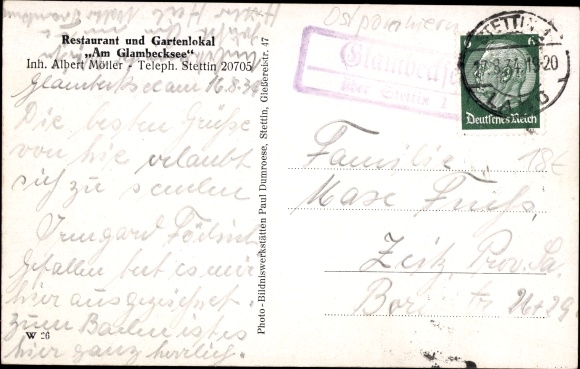 Restaurant und Gartenlokal
„Am Glambecksee“
Inh. Albert Möller - Teleph. Stettin 20705
Glambecksee am 16.8.34
Die besten Grüße
von hie erlaubt
sich zu senden
Irmgard
Gefallen tut es mir
hier ausgezeichnet.
zum Baden ist es
hier ganz herrlich.
W 26
Photo-Bildniswerkstätten Paul Dumroese, Stettin, Gießereistr. 47
Ostpommern
Glambecksee
über Stettin 1
STETTIN
6 6
Deutsches Reich
18€
Familie
Max
Zeitz Prov. Sa.
27+29